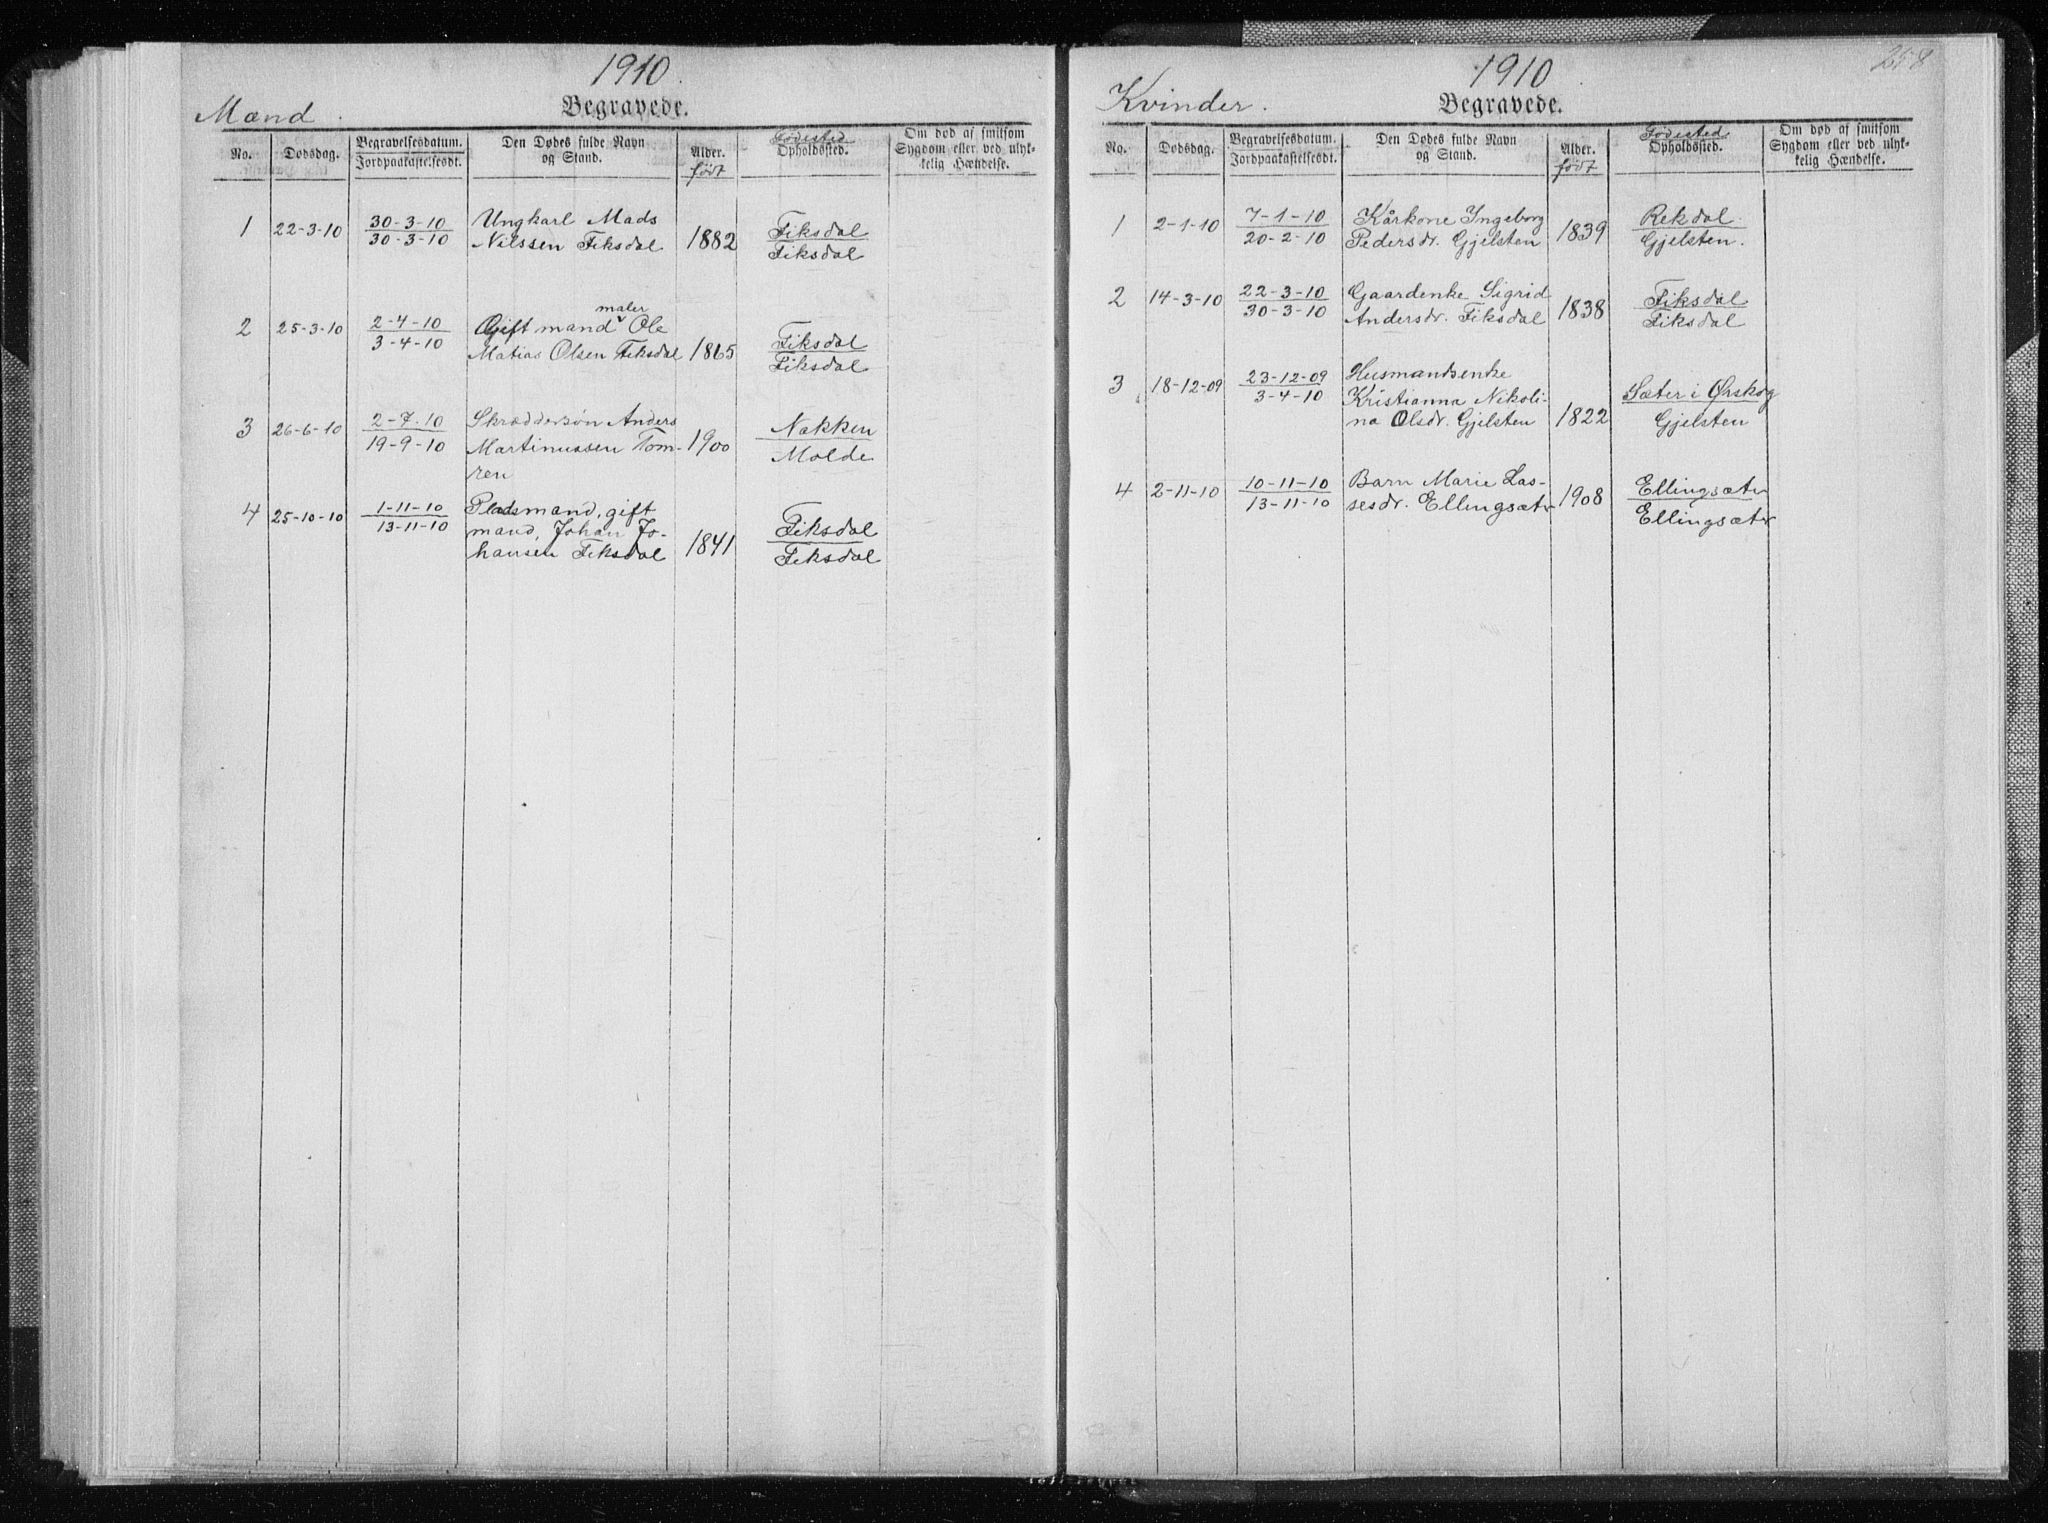 1910.
Mænd.
Begravede.
No.
Dødsdag.
Begravelsesdatum.
Jordpaakastelsesdt.
Den Dødes fulde Navn
og Stand.
Alder.
født
Fødested
Opholdssted.
Om død af smitsom
Sygdom eller ved ulyk-
kelig Hændelse.
1 22-3-10 30-3-10 Ungkarl Mads
30-3-10 Nilssen Fiksdal 1882 Fiksdal
Fiksdal
maler
2 25-3-10 2-4-10 Gift mand Ole
3-4-10 Matias Olsen Fiksdal 1865 Fiksdal
Fiksdal
3 26-6-10 2-7-10 Skræddersøn Anders Nakken
19-9-10 Martinussen Tom- 1900 Molde
ren
4 25-10-10 1-11-10 Pladsmand, gift
13-11-10 mand, Johan Jo- Fiksdal
hansen Fiksdal 1841 Fiksdal
1910 258
Kvinder.
Begravede.
No.
Dødsdag.
Begravelsesdatum.
Jordpaakastelsesdt.
Den Dødes fulde Navn
og Stand.
Alder.
født
Fødested
Opholdssted.
Om død af smitsom
Sygdom eller ved ulyk-
kelig Hændelse.
1 2-1-10 7-1-10 Kårkone Ingeborg 1839 Rekdal.
20-2-10 Pedersdr. Gjelsten Gjelsten.
2 14-3-10 22-3-10 Gaardenke Sigrid Fiksdal
30-3-10 Andersdr. Fiksdal 1838 Fiksdal
3 18-12-09 23-12-09 Husmandsenke
3-4-10 Kristianna Nikoli- Sæter i Ørskog
na Olsdr. Gjelsten 1822 Gjelsten
4 2-11-10 10-11-10 Barn Marie Las- Ellingsæter
13-11-10 sesdr. Ellingsæter 1908 Ellingsæter